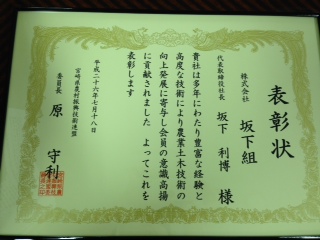 表彰状
株式会社 坂下組
代表取締役社長 坂下 利博 様
貴社は多年にわたり豊富な経験と
高度な技術により農業土木技術の
向上発展に寄与し会員の意識高揚
に貢献されました よってこれを
表彰します
平成二十六年七月十八日
宮崎県農村振興技術連盟
委員長 原 守利